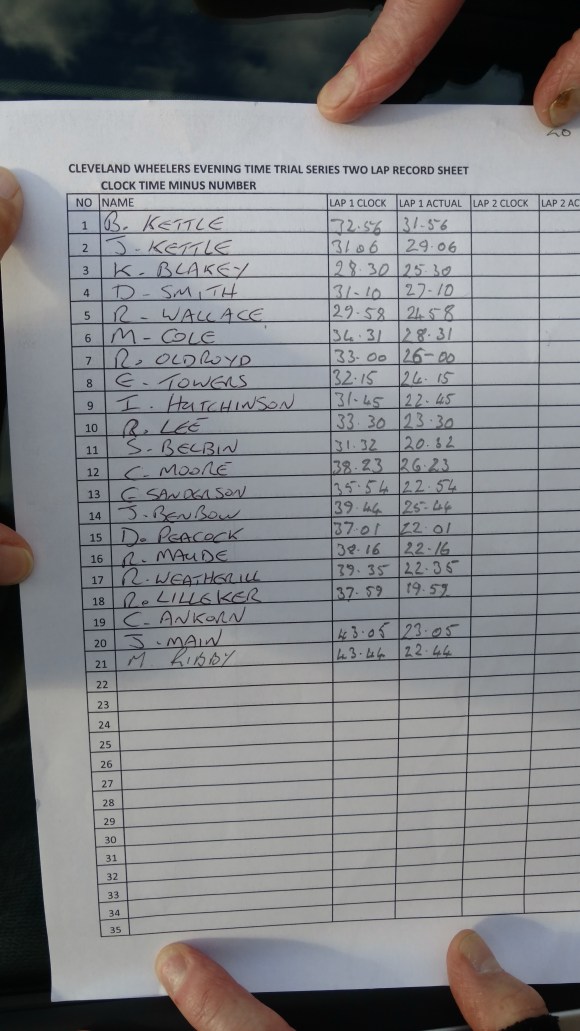 20
CLEVELAND WHEELERS EVENING TIME TRIAL SERIES TWO LAP RECORD SHEET
CLOCK TIME MINUS NUMBER
NO NAME LAP 1 CLOCK LAP 1 ACTUAL LAP 2 CLOCK LAP 2 AC
1 B. KETTLE 32.56 31-56
2 J. KETTLE 31.06 29.06
3 K. BLAKEY 28.30 25.30
4 D - SMITH 31-10 27-10
5 R - WALLACE 29.58 24.58
6 M - COLE 34.31 28.31
7 R. OLDROYD 33.00 26-00
8 E - TOWERS 32.15 24.15
9 I. HUTCHINSON 31.45 22.45
10 R. LEE 33.30 23.30
11 S. BELBIN 31.32 20.32
12 C. MOORE 38.23 26.23
13 G SANDERSON 35.54 22.54
14 J. BENBOW 39.44 25.44
15 D. PEACOCK 37.01 22.01
16 R. MAUDE 38.16 22.16
17 R. WEATHERILL 39.35 22.35
18 R. LILLEKER 37.59 19.59
19 C. ANKORN
20 J. MAIN 43.05 23.05
21 M RIBBY 43.44 22.44
22
23
24
25
26
27
28
29
30
31
32
33
34
35